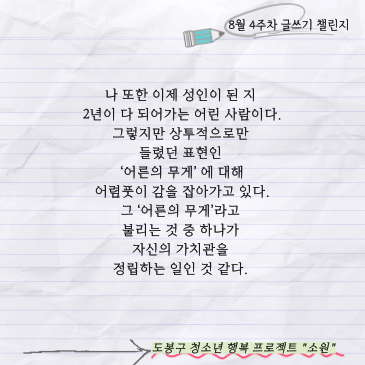 8월 4주차 글쓰기 챌린지
나 또한 이제 성인이 된 지
2년이 다 되어가는 어린 사람이다.
그렇지만 상투적으로만
들렸던 표현인
‘어른의 무게’ 에 대해
어렴풋이 감을 잡아가고 있다.
그 ‘어른의 무게’라고
불리는 것 중 하나가
자신의 가치관을
정립하는 일인 것 같다.
도봉구 청소년 행복 프로젝트 "소원"